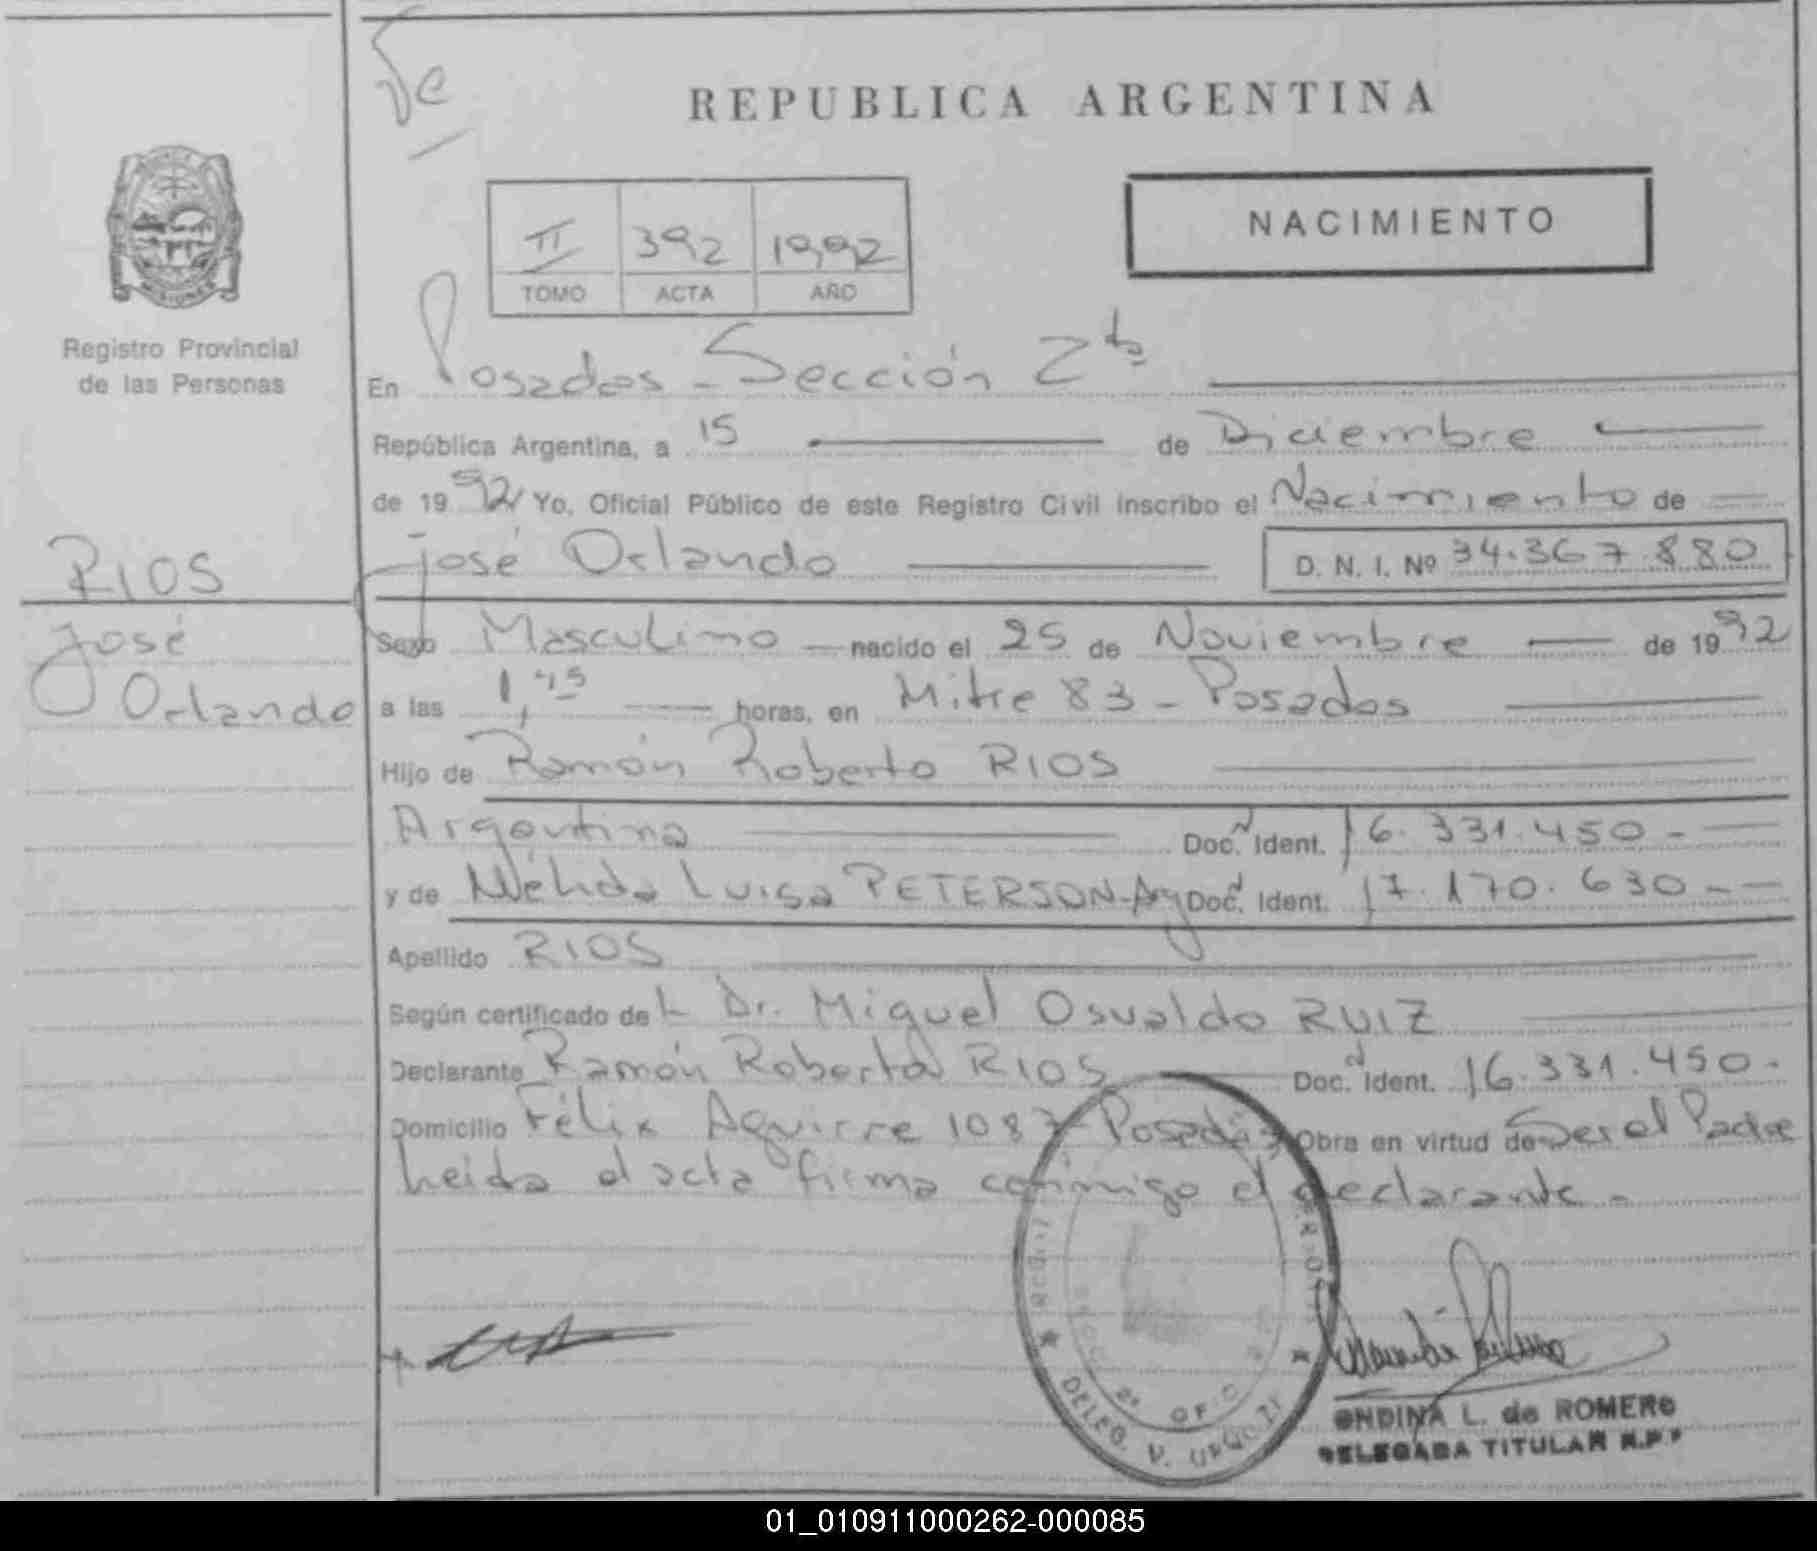 REPUBLICA ARGENTINA
NACIMIENTO
II 392 1992
TOMO ACTA AÑO
MISIONES
Registro Provincial
de las Personas
RIOS
José
Orlando
En Posadas - Sección 2da
República Argentina, a 15 de Diciembre
de 1992 Yo, Oficial Público de este Registro Civil inscribo el Nacimiento de
José Orlando D. N. I. Nº 34.367.880
Sexo Masculino nacido el 25 de Noviembre de 1992
a las 1,45 horas, en Mitre 83 - Posadas
Hijo de Ramón Roberto RIOS
Argentina Doc. Ident. 16.331.450 -
y de Nélida Luisa PETERSON-Arg Doc. Ident. 17.170.630 -
Apellido RIOS
Según certificado del Dr. Miguel Osvaldo RUIZ
Declarante Ramón Roberto RIOS Doc. Ident. 16.331.450.
Domicilio Félix Aguirre 1087 Posadas Obra en virtud de Ser el Padre
Leida el acta firma conmigo el declarante -
DELEG. V. URQUIZA
2ª OFIC
ONDINA L. de ROMERO
DELEGADA TITULAR R.P.P
01_010911000262-000085